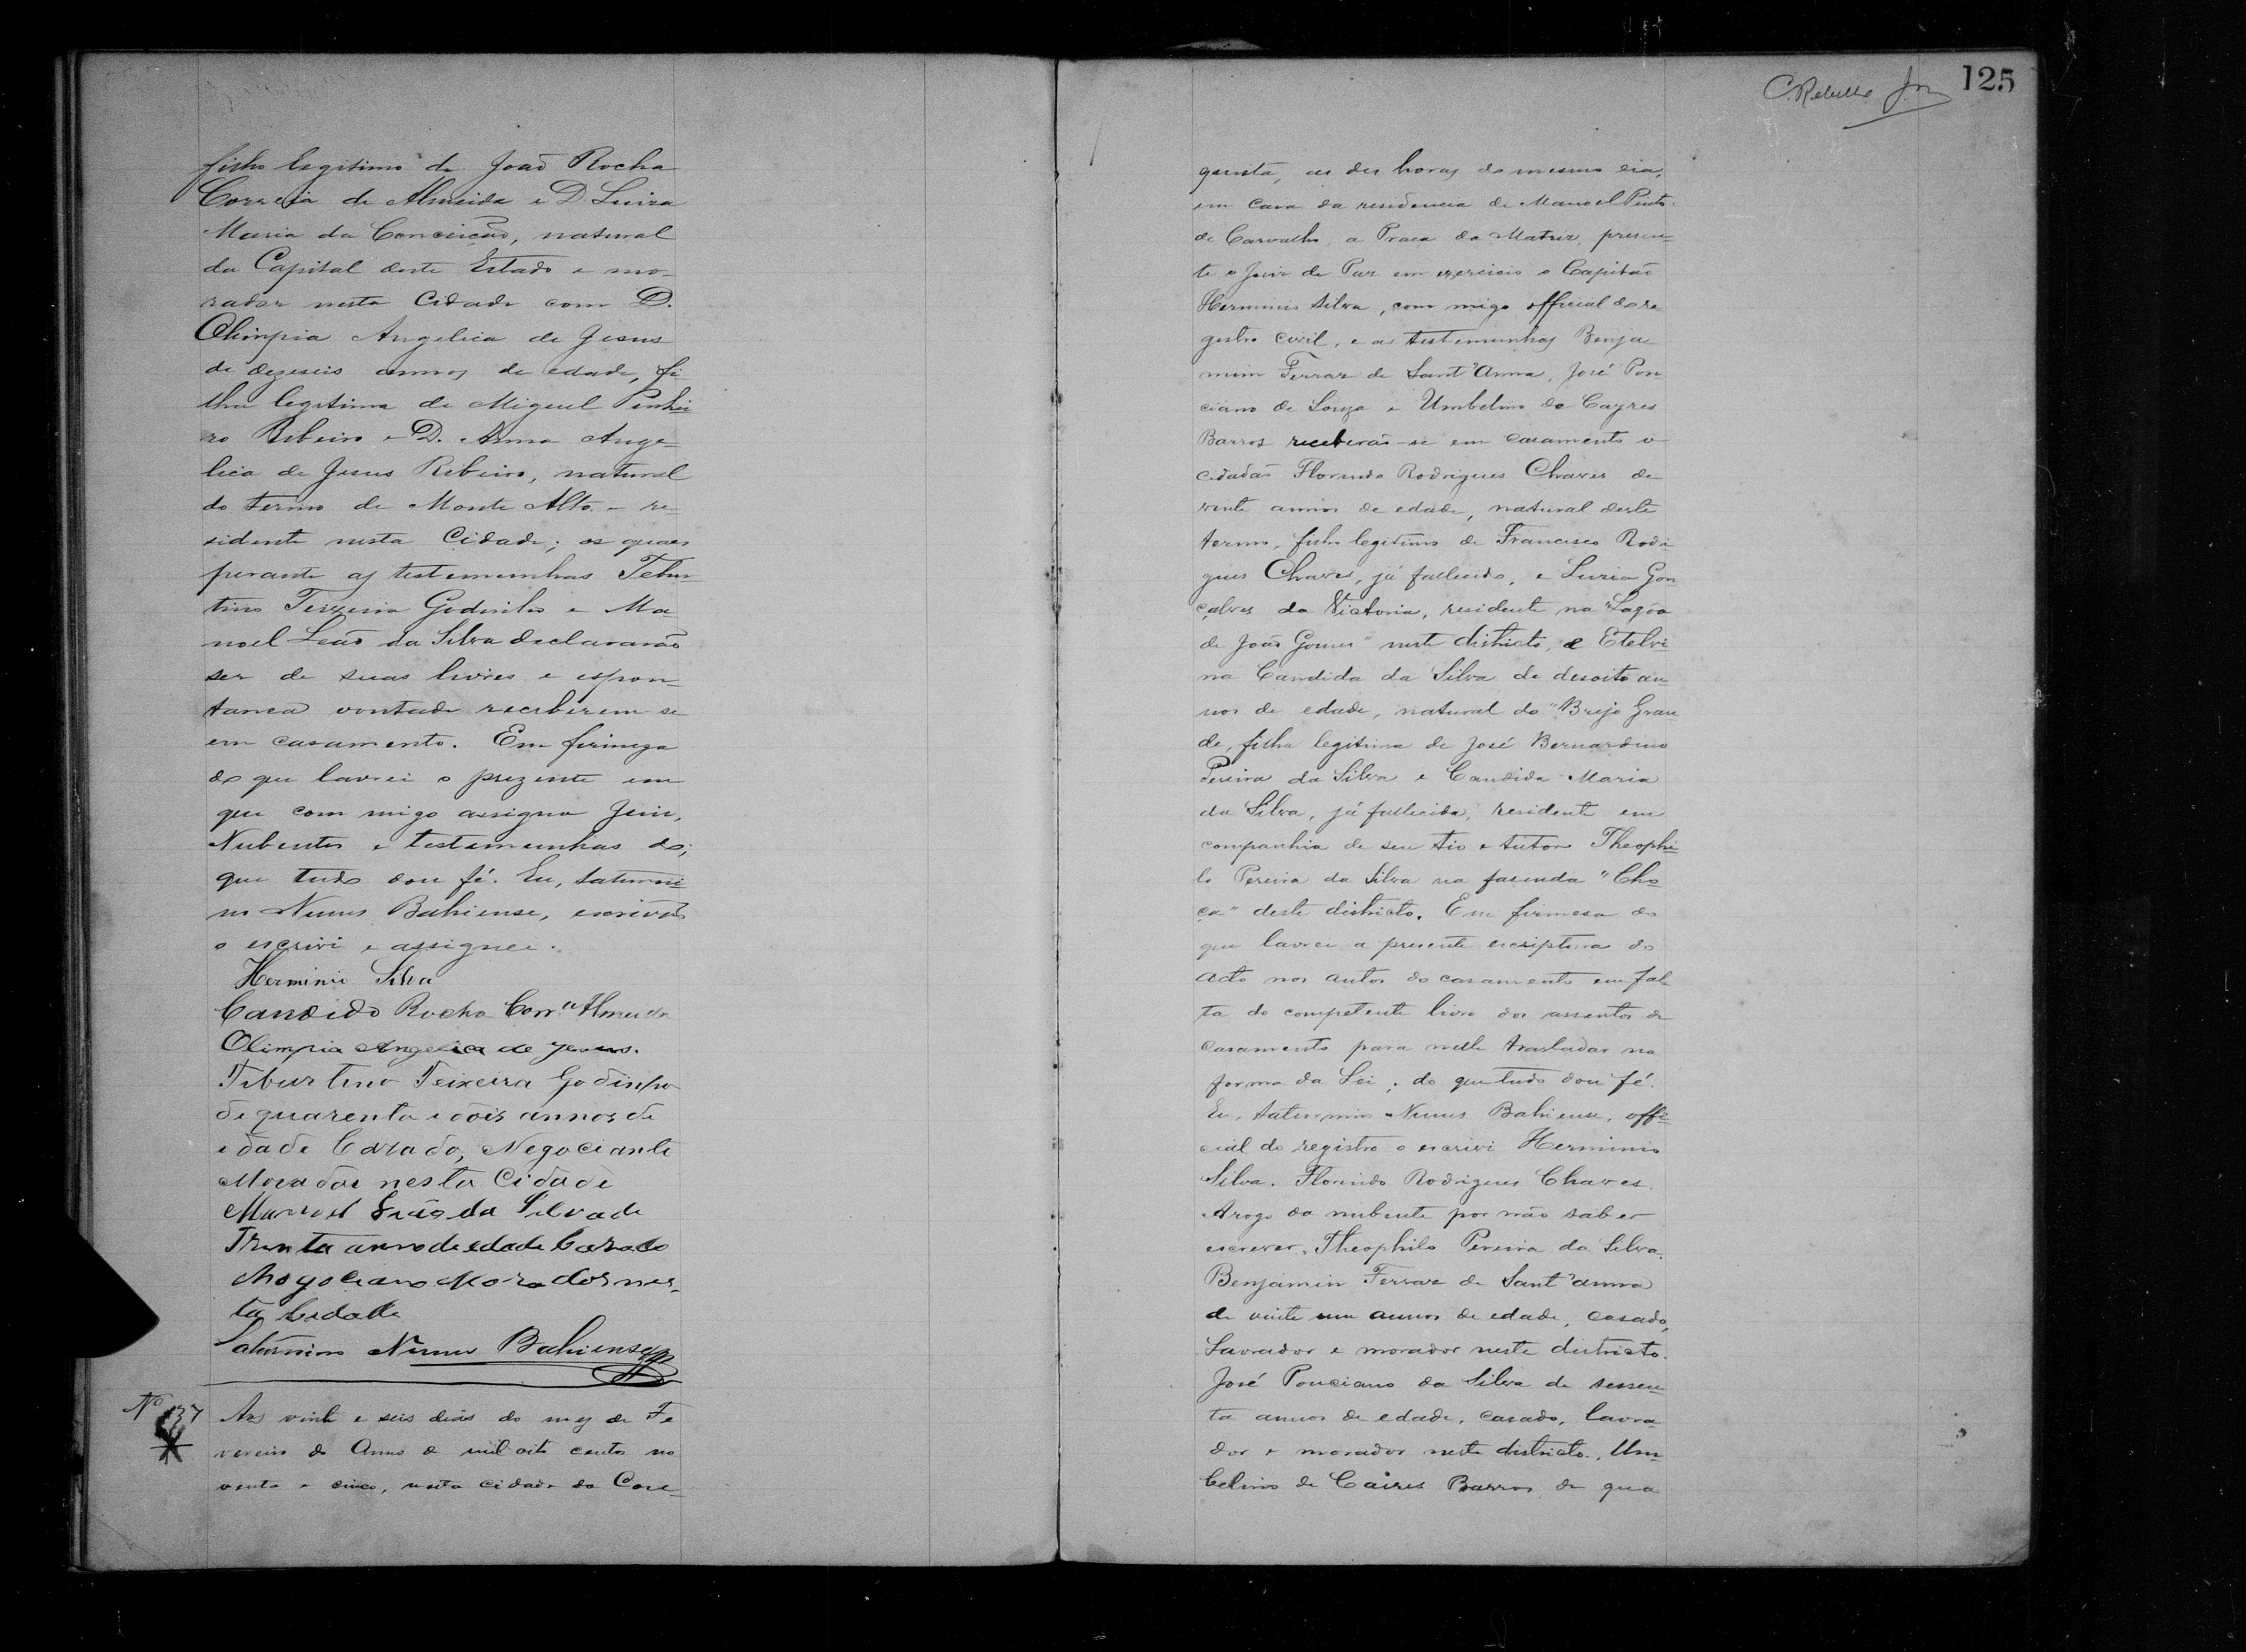 filho legitimo de João Rocha
Correia de Almeida e D. Luiza
Maria da Conceicão, natural
da Capital deste Estado e mo-
rador nesta Cidade com D.
Olimpia Angelica de Jesus
de dezeseis annos de edade, fi
lha legitima de Miguel Pinhei
ro Ribeiro e D. Anna Ange-
lica de Jesus Ribeiro, natural
do termo de Monte Alto e re-
sidente nesta Cidade; os quaes
perante as testemunhas Tebur
tino Teixeira Godinho e Ma-
noel Leão da Silva declararão
ser de suas livres e espon-
tanea vontade receberem-se
em casamento. Em firmeza
do que lavrei o prezente em
que com migo assigna Juiz,
Nubentes e testemunhas do;
que tudo dou fé. Eu, Saturni
no Nunes Bahiense, escrivão
o escrivi e assignei.
Herminio Silva
Candido Rocha Corrª Almeida
Olimpia Angelica de Jesus.
Tiburtino Teixeira Godinho
de quarenta e dois annos de
idade Cazado, Negociante
Morador nesta Cidade
Manoel Leão da Silva de
Trenta anno de edade Cazado
Negociano Morador nes-
ta Cidade
Saturnino Nunes Bahiense
Nº 137 Aos vinte e seis dias do mez de Fe
vereiro do Anno de mil oito centos no
venta e cinco, nesta cidade da Con-
C. Rebello Jor 125
quista, as dez horas do mesmo dia,
em casa da residencia de Manoel Pinto
de Carvalho, a Praca da Matriz, presen-
te o Juiz de Paz em exercicio o Capitão
Herminio Silva, com migo official do re
gistro civil, e as testemunhas Benja
mim Ferraz de Sant'Anna, José Pon
ciano de Souza e Umbelino de Cayres
Barros receberão-se em casamento o
cidadão Florindo Rodrigues Chaves de
vinte annos de edade, natural deste
termo, filho legitimo de Francisco Rodri
gues Chaves, já fallecido, e Luzia Gon
çalves da Victoria, residente na "Lagôa
de João Gomes" neste districto, e Etelvi
na Candida da Silva de desoito an
nos de edade, natural do "Brejo Gran
de, filha legitima de José Bernardino
Pereira da Silva e Candida Maria
da Silva, já fallecida, residente em
companhia de seu tio e tutor Theophi
lo Pereira da Silva na fazenda "Cho
ça" deste districto. Em firmesa do
que lavrei a presente escriptura do
acto nos autos do casamento em fal
ta do competente livro dos assentos de
casamento para nelle trasladar na
forma da Lei; do que tudo dou fé.
Eu, Saturnino Nunes Bahiense, offi
cial do registro o escrivi Herminio
Silva. Florindo Rodrigues Chaves.
Arogo da nubente por não saber
escrever, Theophilo Pereira da Silva.
Benjamin Ferraz de Sant'anna
de vinte um annos de edade, casado,
Lavrador e morador neste districto.
José Ponciano da Silva de sessen
ta annos de edade, casado, lavra
dor e morador neste districto. Um
belino de Caires Barros, de qua